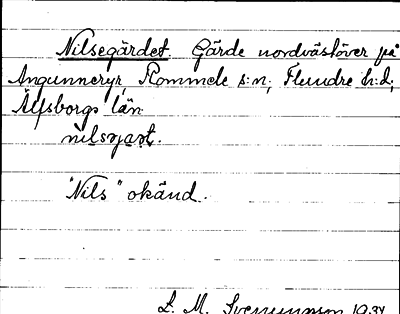 Nilsegärdet. Gärde nordväst över på
Angunneryr, Rommele s:n, Flundre h:d,
Älfsborgs län
"Nils" okänd.
L. M. Svensson 1934